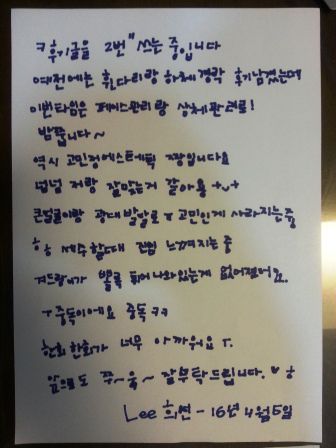 ㅋ 후기글을 2번" 쓰는 중입니다
예전에는 휜다리랑 하체경락 후기남겼는데
이번타임은 페이스관리랑 상체관리로!
바꿉니다~
역시 고민정에스테틱 짱입니다요
넘넘 저랑 잘맞는거 같아용 ㅜ^ㅜ
큰얼굴이랑 광대발달로ㅜ 고민인게 사라지는중
ㅎㅎ 세수할때 전혀 느껴지는중
겨드랑이가 뽈록 튀어나와있는게 없어졌어요..
ㅜ중독이에요 중독 ㅋㅋ
한회한회가 너무 아까워요 ㅜ.
앞으로도 쭈~욱~ 잘부탁드립니다. ♡ ㅎ
Lee 희 - 16년 4월5일